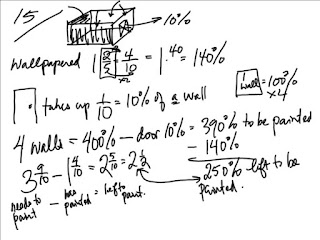 15
10%
wallpapered 1 2/5 = 4/10 = 1.40 = 140%
×2
1 wall = 100%
×4
takes up 1/10 = 10% of a wall
4 walls = 400% - door 10% = 390% to be painted
- 140%
250% left to be painted.
3 9/10 - 1 4/10 = 2 5/10 = 2 1/2
needs to paint - has painted = left to paint.